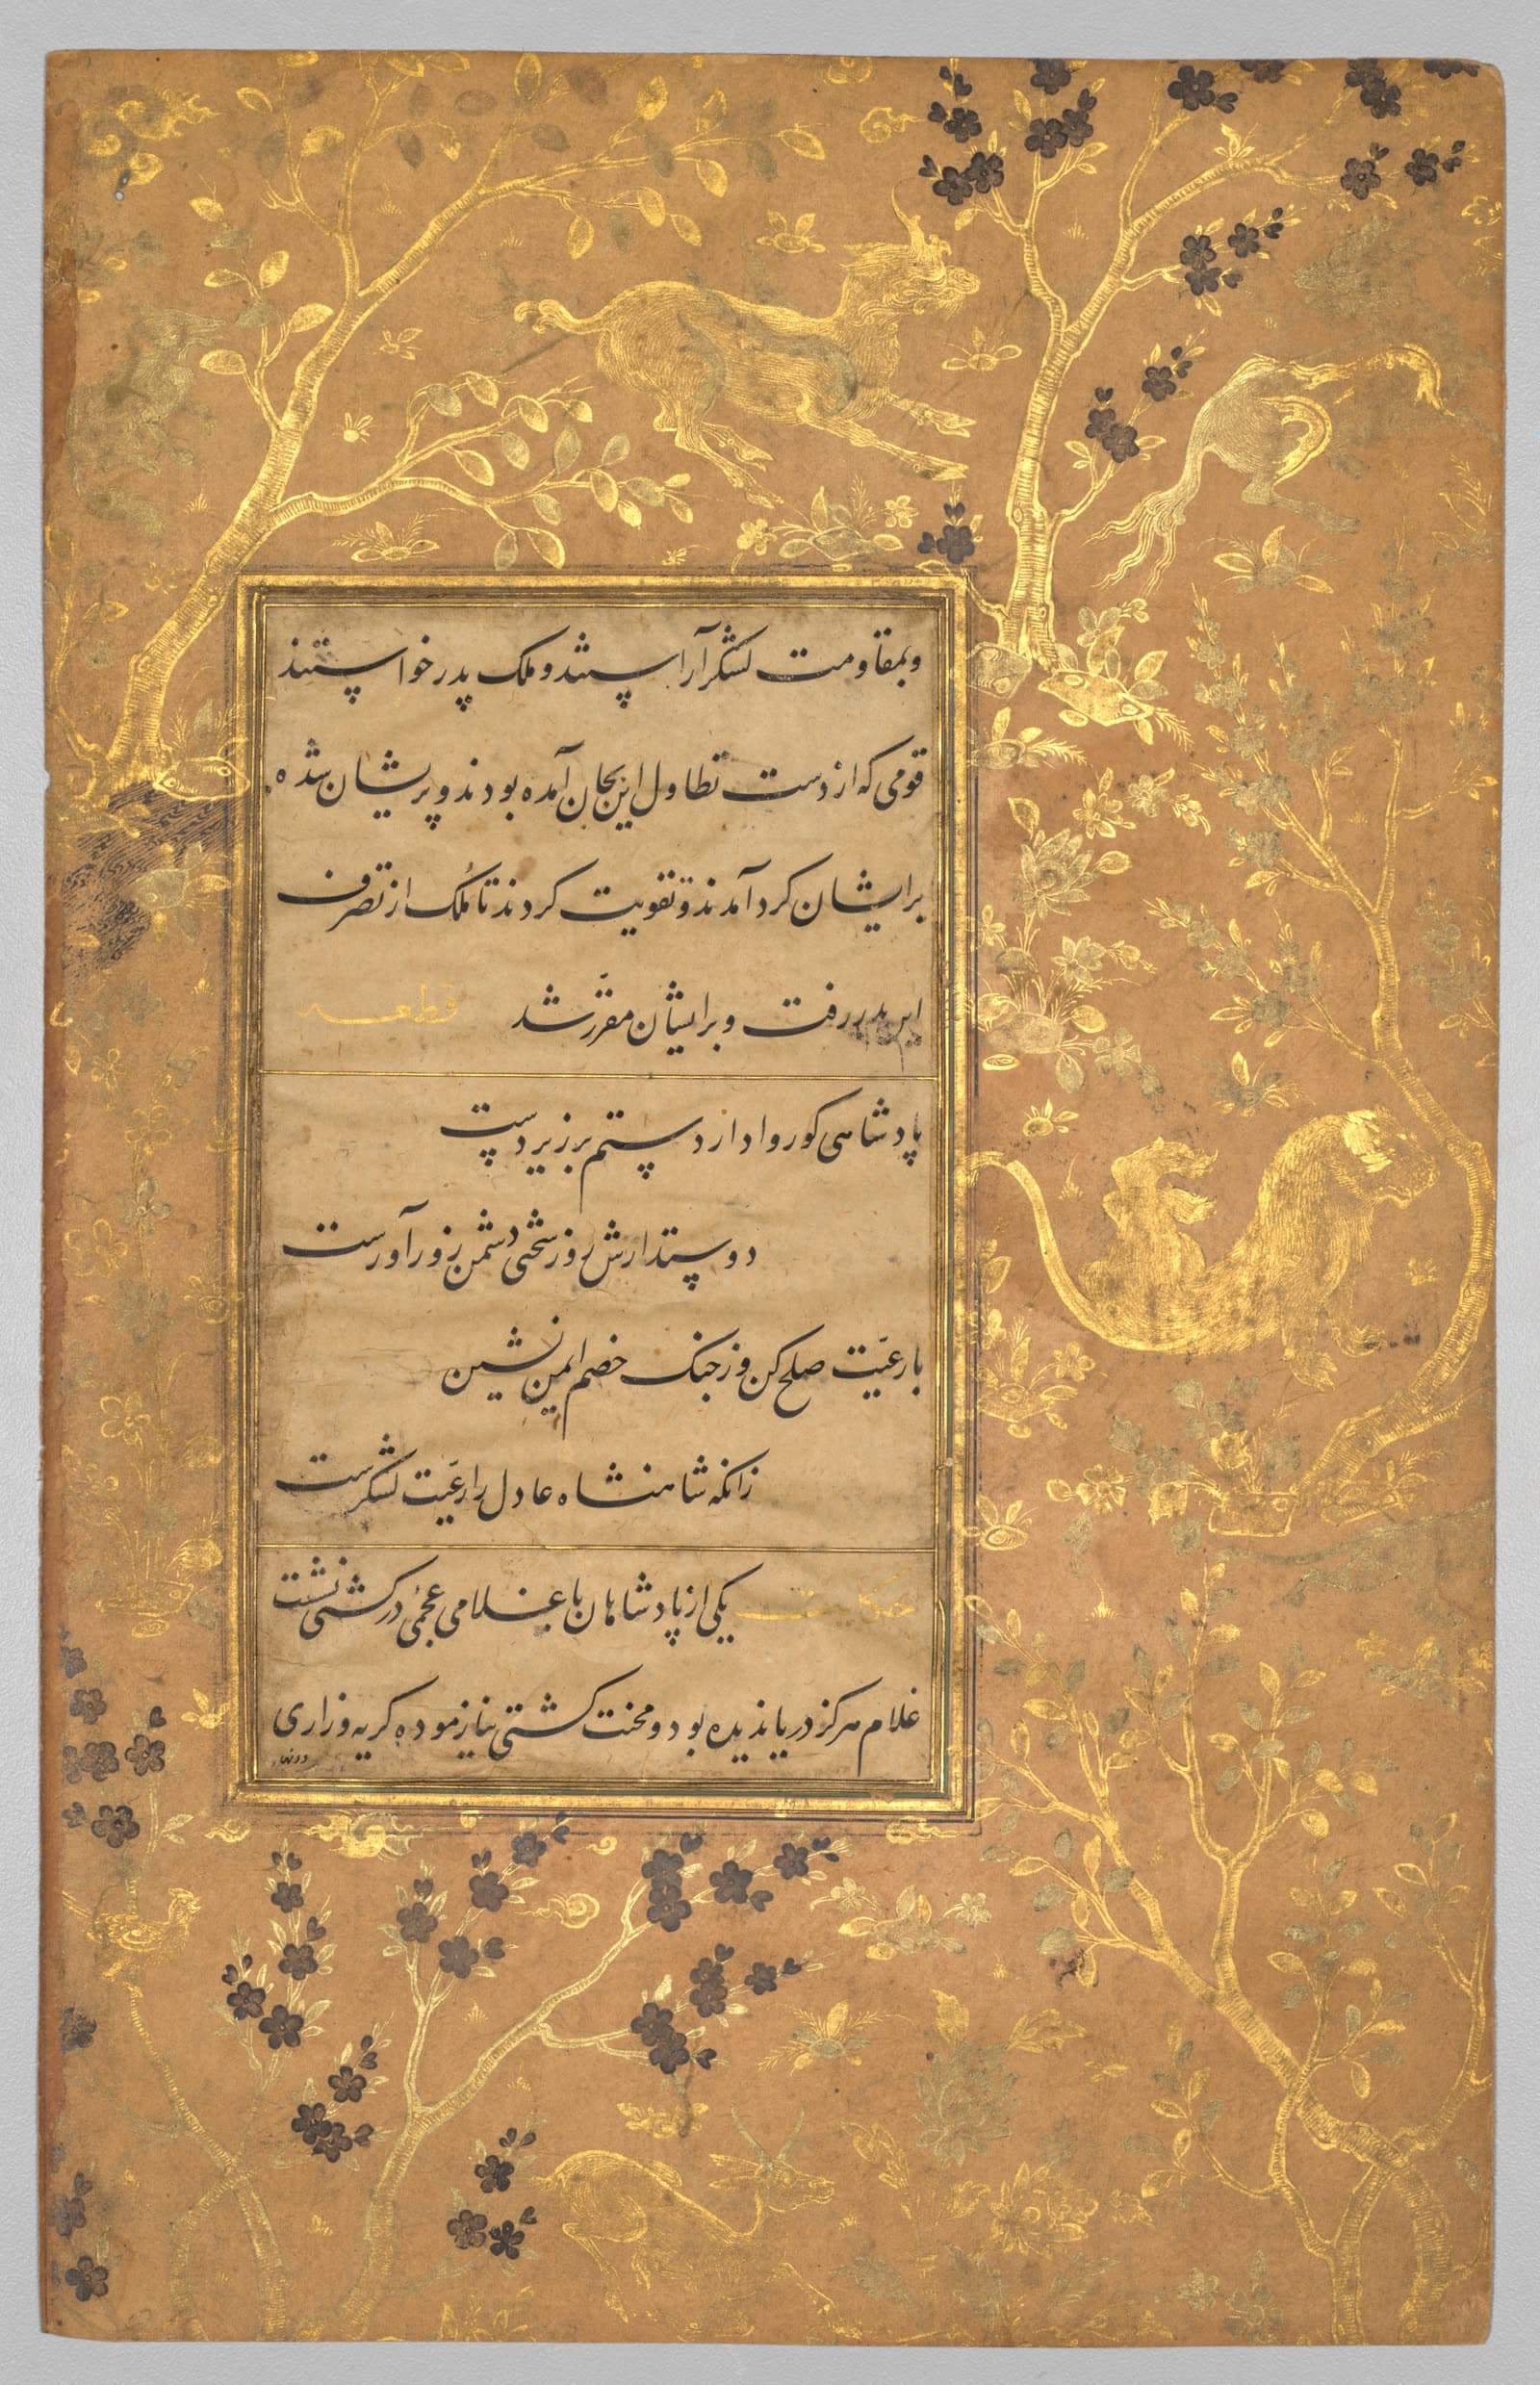 و بمقاومت لشکر آراستند و ملک پدر خواستند
قومی که از دست تطاول این بجان آمده بودند و پریشان شده
بر ایشان کرد آمدند و تقویت کردند تا مُلک از تصرف
این بدر رفت و بر ایشان مقرّر شد قطعه
پادشاهی کو روا دارد ستم بر زیردست
دوستدارش روز سختی دشمن زورآورست
با رعیّت صلح کن وز جنک خصم ایمن نشین
زانکه شاهنشاه عادل را رعیّت لشکرست
حکایت یکی از پادشاهان با غلامی عجمی در کشتی نشت
غلام هرکز دریا ندیده بود و محنت کشتی نیازموده کریه و زاری